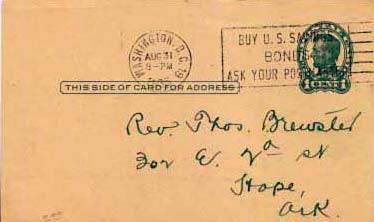 WASHINGTON, D.C. 19
AUG 31
9-PM
BUY U.S. SAVINGS
BONDS
ASK YOUR POSTMASTER
THIS SIDE OF CARD FOR ADDRESS
1 CENT 1
Rev. Thos. Brewster
302 E. 2nd St
Hope,
Ark.